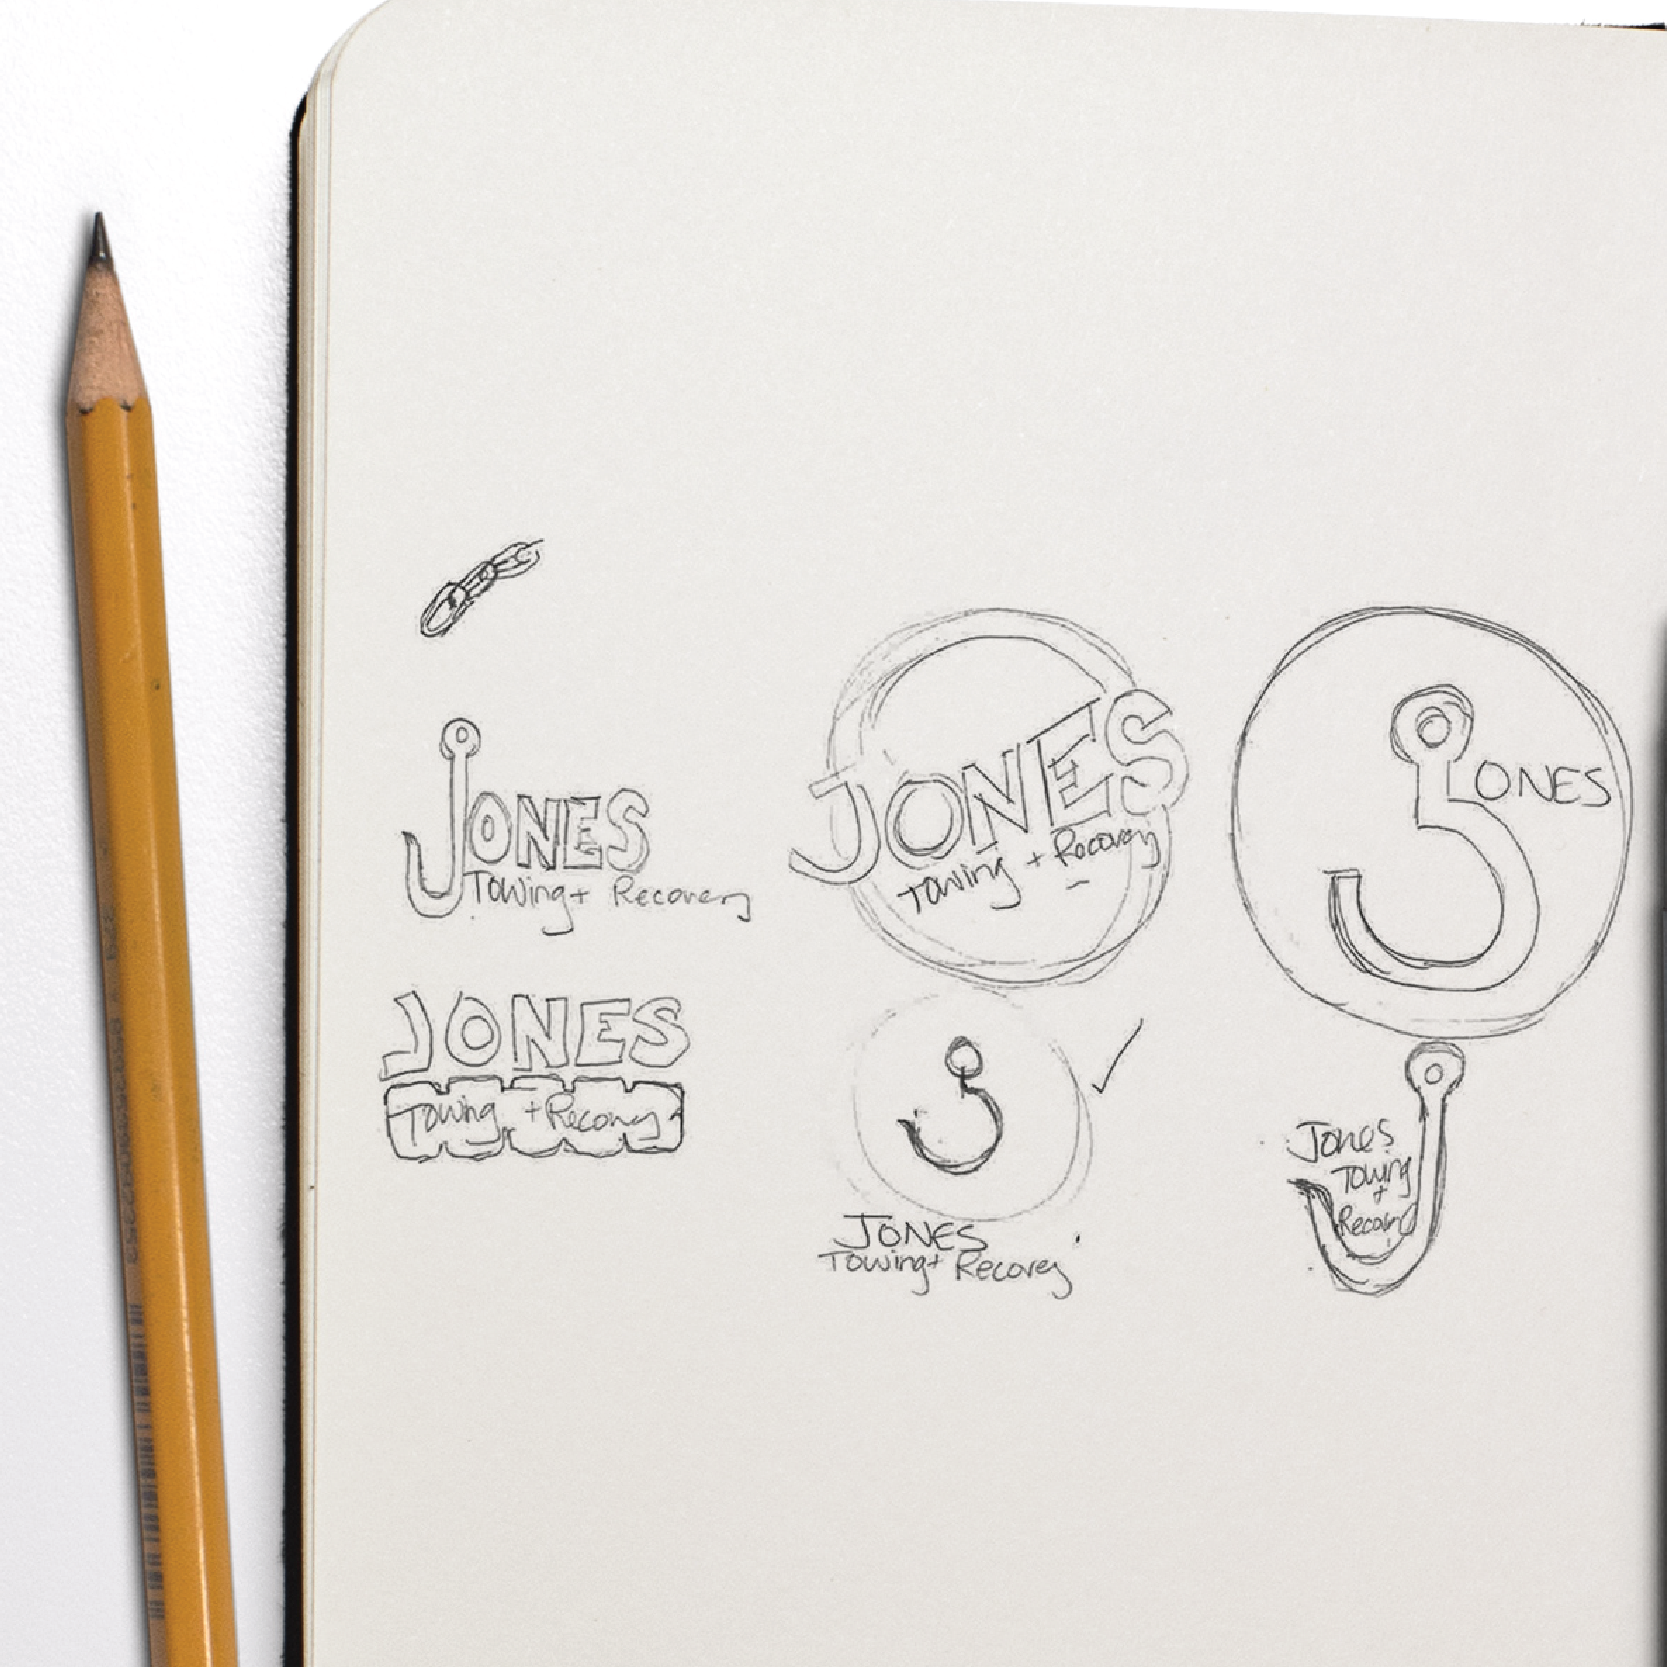 JONES
Towing + Recovery
JONES
Towing + Recovery
JONES
Towing + Recovery
JONES
Towing + Recovery
JONES
Jones
Towing
+
Recovery